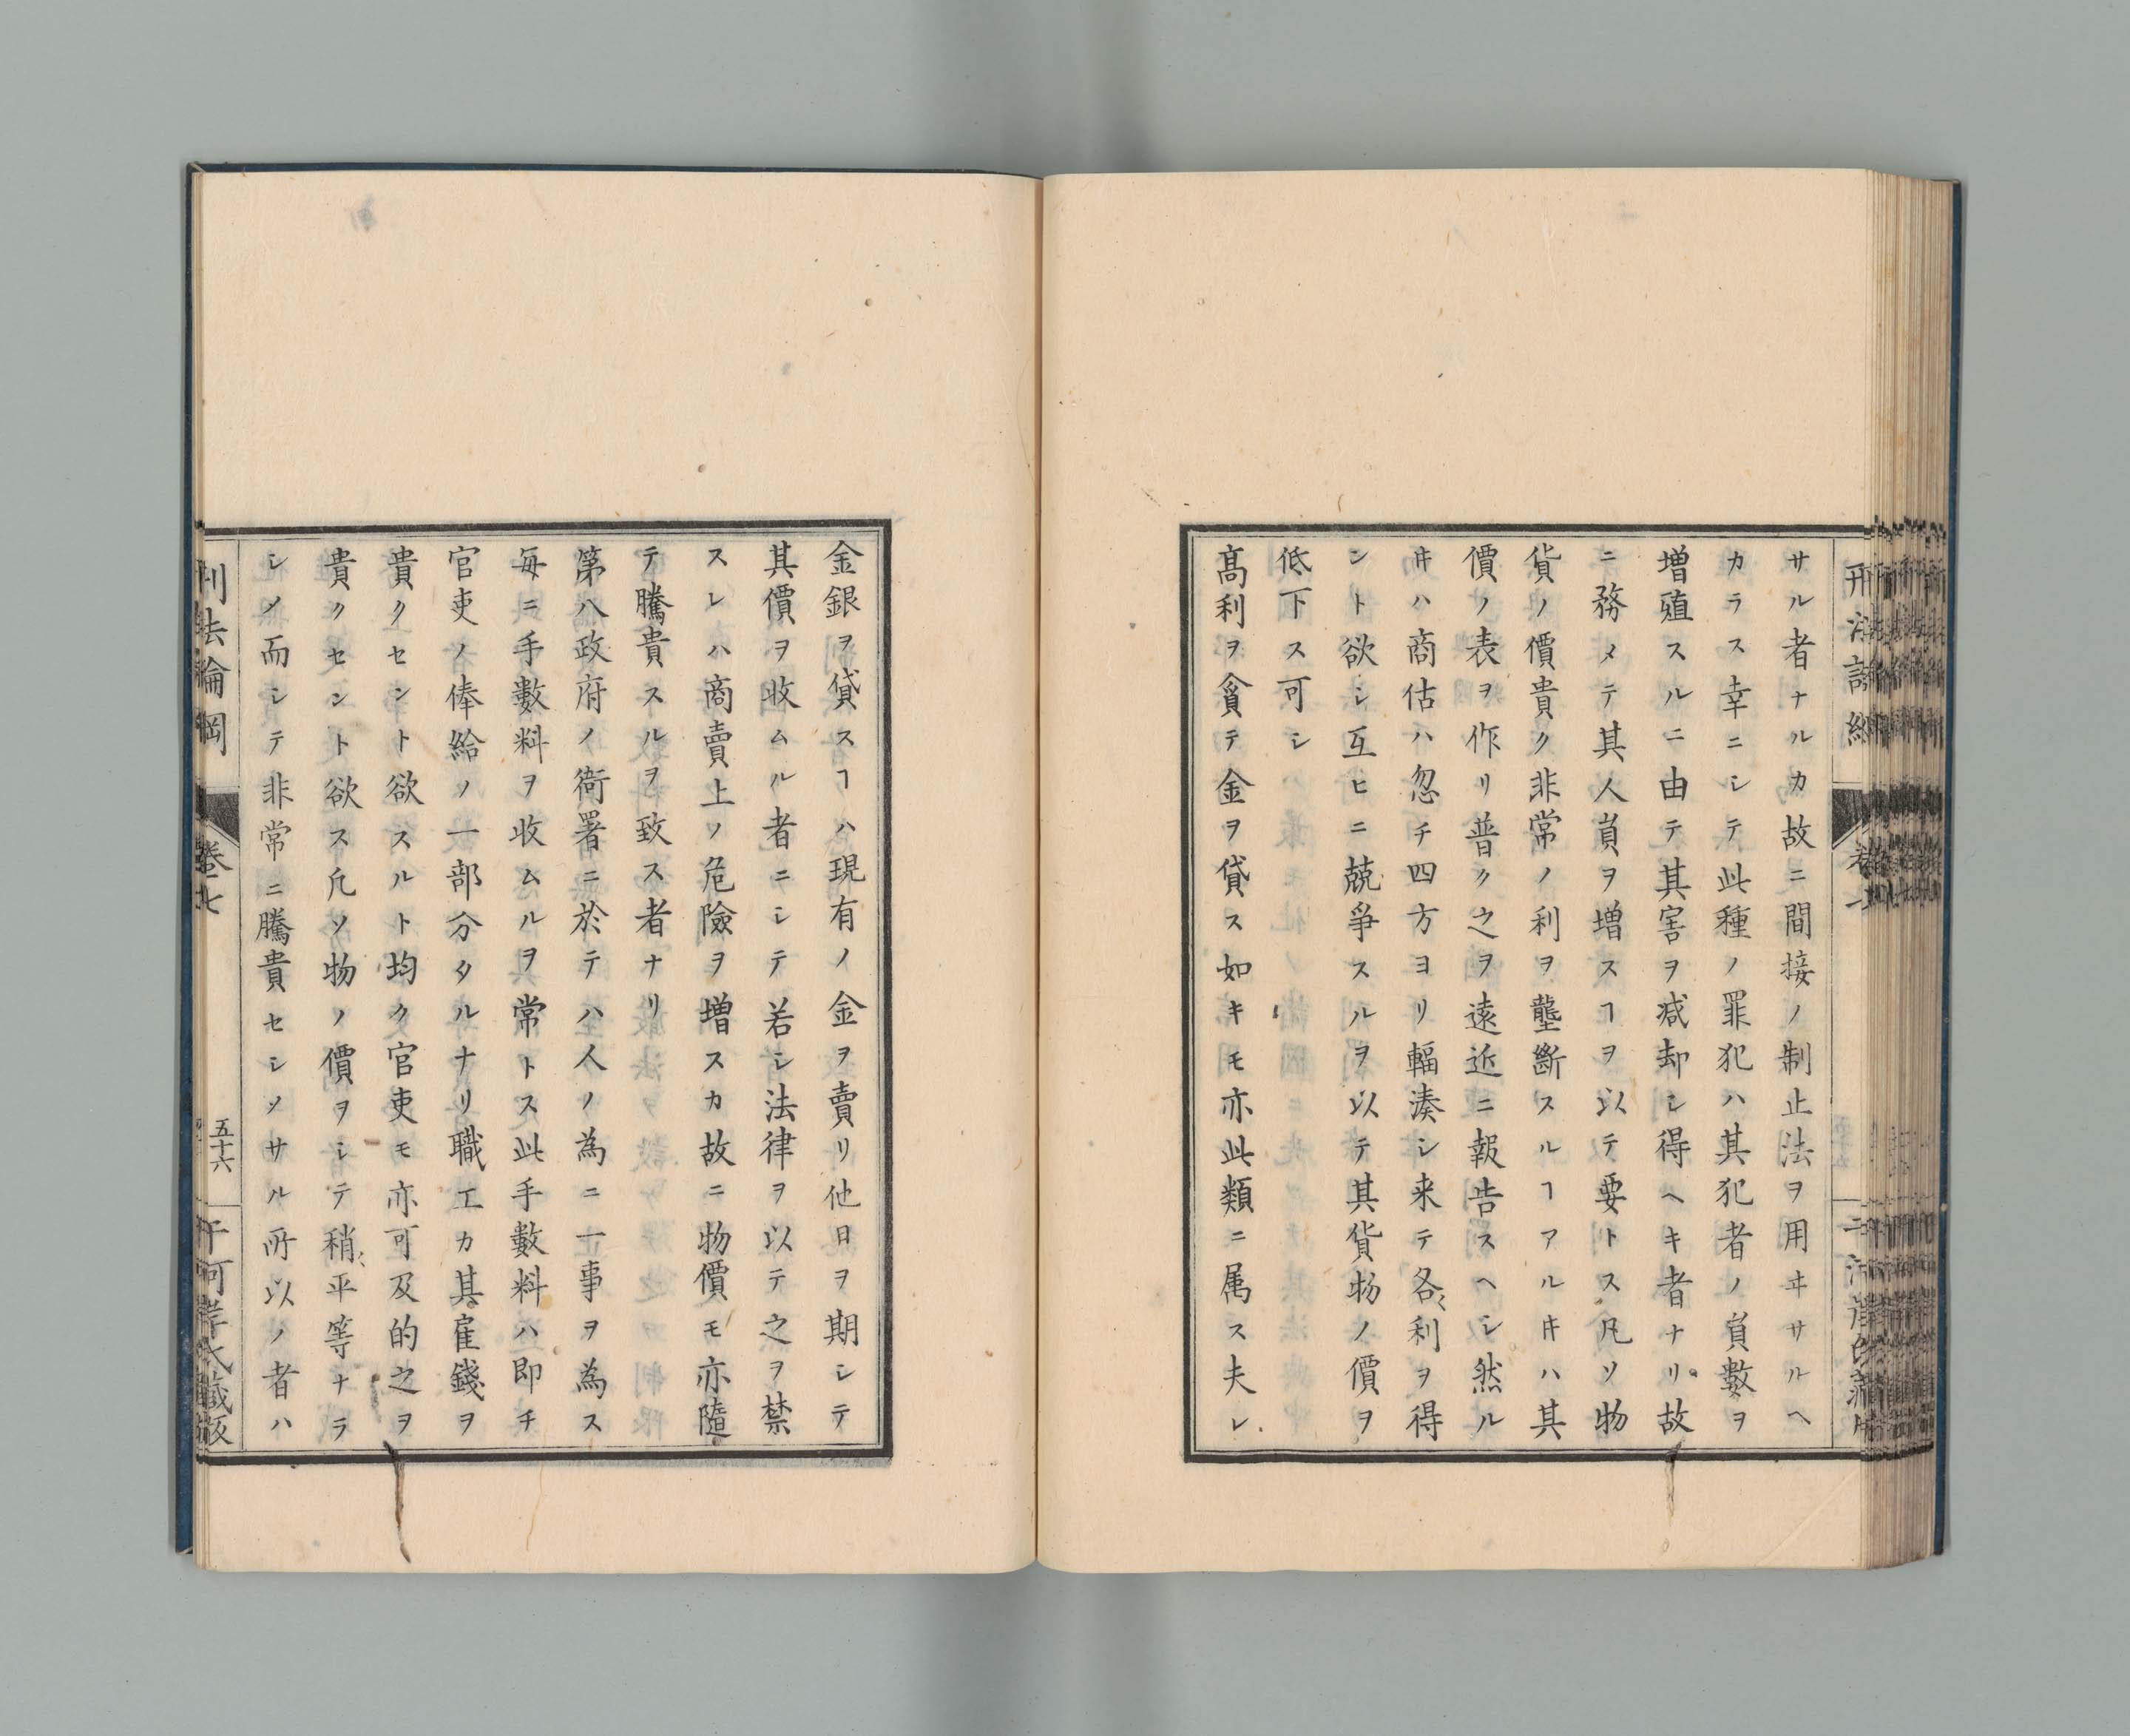 サル者ナルカ故ニ間接ノ制止法ヲ用ヰサルヘ
カラス幸ニシテ此種ノ罪犯ハ其犯者ノ員數ヲ
増殖スルニ由テ其害ヲ减却シ得ヘキ者ナリ故
ニ務メテ其人員ヲ増スヿヲ以テ要トス凡ソ物
貨ノ價貴ク非常ノ利ヲ壟斷スルヿアルキハ其
價ノ表ヲ作リ普ク之ヲ遠近ニ報告スヘシ然ル
キハ商估ハ忽チ四方ヨリ輻湊シ来テ各〻利ヲ得
ント欲シ互ヒニ競爭スルヲ以テ其貨物ノ價ヲ
低下ス可シ
髙利ヲ貪テ金ヲ貸ス如キモ亦此類ニ属ス夫レ
金銀ヲ貸スヿハ現有ノ金ヲ賣リ他日ヲ期シテ
其價ヲ收ムル者ニシテ若シ法律ヲ以テ之ヲ禁
スレハ商賣上ノ危險ヲ増スカ故ニ物價モ亦隨
テ騰貴スルヲ致ス者ナリ
第八政府ノ衙署ニ於テハ人ノ為ニ一事ヲ為ス
毎ニ手數料ヲ收ムルヲ常トス此手數料ハ即チ
官吏ノ俸給ノ一部分タルナリ職工カ其雇錢ヲ
貴クセント欲スルト均ク官吏モ亦可及的之ヲ
貴クセント欲ス凡ソ物ノ價ヲシテ稍〻平等ナラ
シメ而シテ非常ニ騰貴セシメサル所以ノ者ハ
刑法論綱
卷七
五十六
千河岸氏藏版